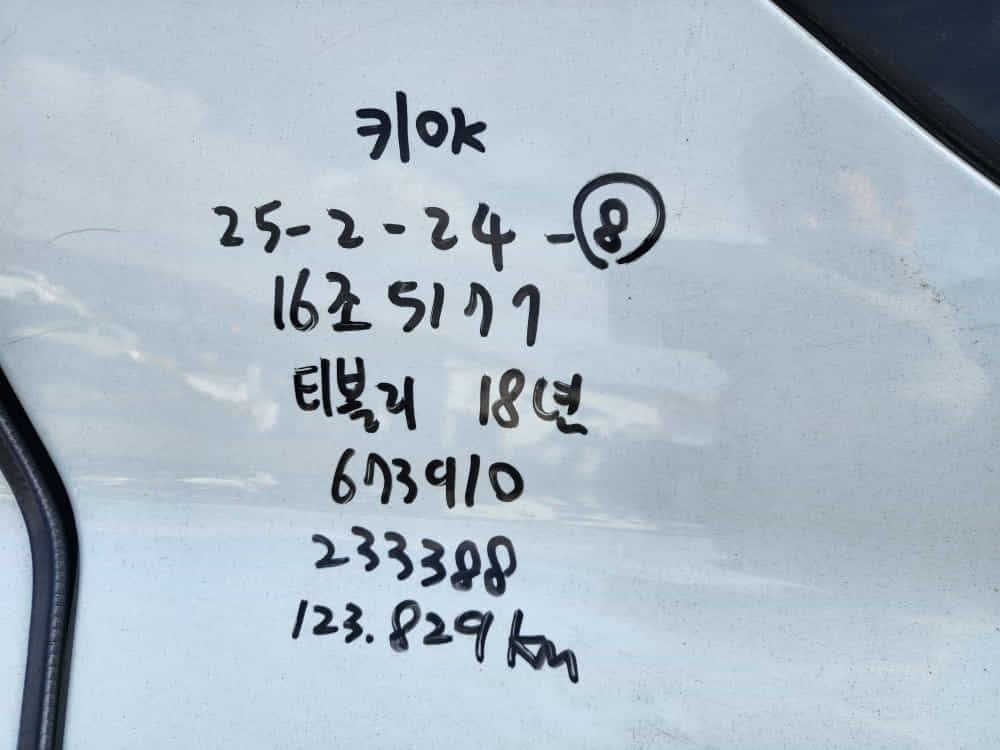 키OK
25-2-24-⑧
16조 5177
티볼리 18년
673910
233388
123.829km